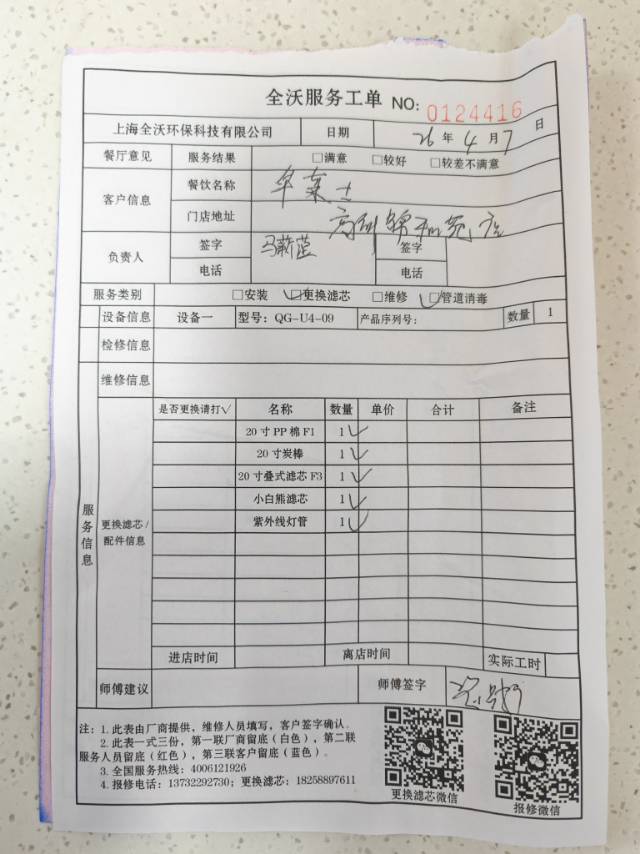 全沃服务工单 NO: 0124416
上海全沃环保科技有限公司 日期 26 年 4 月 7 日
餐厅意见 服务结果 □满意 □较好 □较差不满意
客户信息 餐饮名称
门店地址
负责人 签字 签字
电话 电话
服务类别 □安装 □更换滤芯 □维修 □管道消毒
设备信息 设备一 型号: QG-U4-09 产品序列号: 数量 1
检修信息
维修信息
服务信息 更换滤芯/配件信息 是否更换请打√ 名称 数量 单价 合计 备注
20寸PP棉F1 1 ✓
20寸炭棒 1 ✓
20寸叠式滤芯F3 1 ✓
小白熊滤芯 1 ✓
紫外线灯管 1 ✓
进店时间 离店时间 实际工时
师傅建议 师傅签字
注: 1. 此表由厂商提供, 维修人员填写, 客户签字确认。
2. 此表一式三份, 第一联厂商留底(白色), 第二联
服务人员留底(红色), 第三联客户留底(蓝色)。
3. 全国服务热线: 4006121926
4. 报修电话: 13732292730; 更换滤芯: 18258897611
更换滤芯微信 报修微信